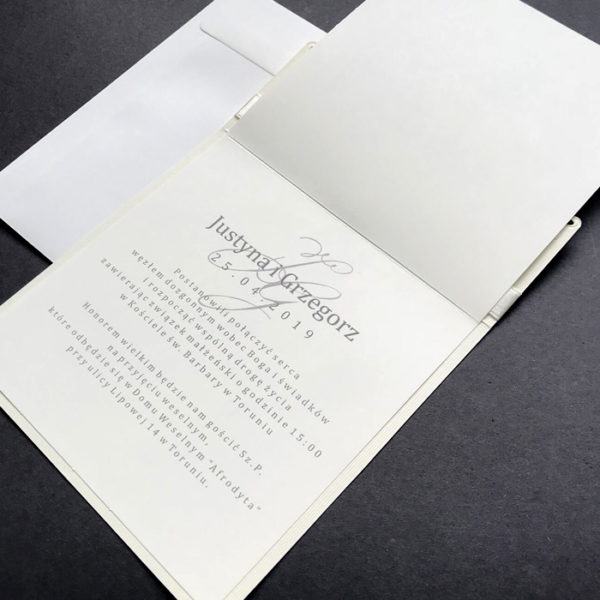 Justyna i Grzegorz
25.04.2019
Postanowili połączyć serca
węzłem dozgonnym wobec Boga i świadków
i rozpocząć wspólną drogę życia
zawierając związek małżeński o godzinie 15:00
w Kościele św. Barbary w Toruniu
Honorem wielkim będzie nam gościć Sz.P.
na przyjęciu weselnym,
które odbędzie się w Domu Weselnym "Afrodyta"
przy ulicy Lipowej 14 w Toruniu.